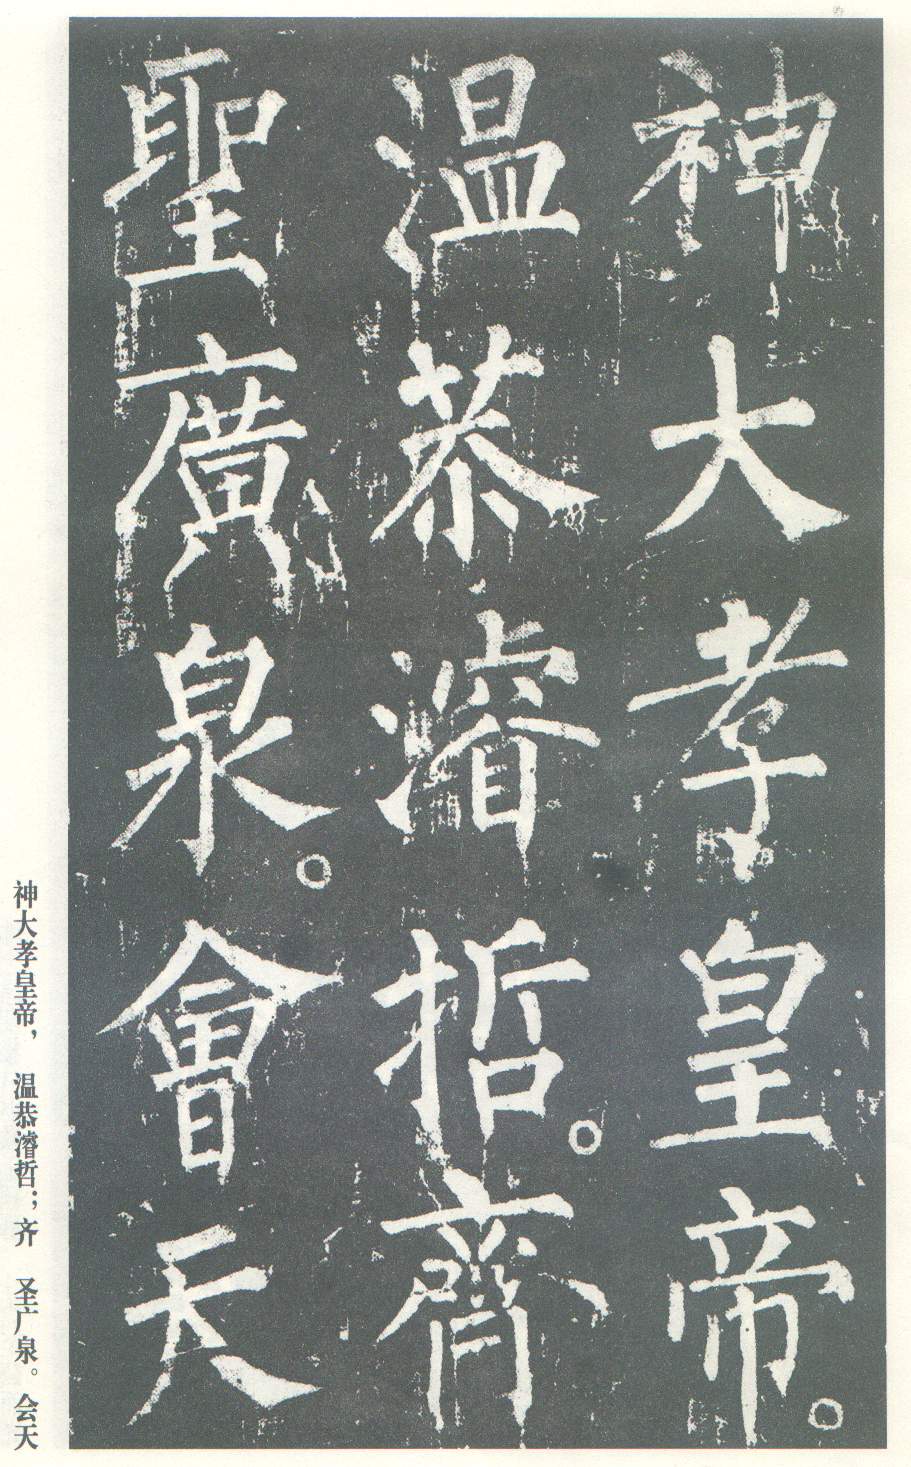 神大孝皇帝。
温恭濬哲。齊
聖廣泉。會天
神大孝皇帝， 温恭濬哲；齐 圣广泉。会天